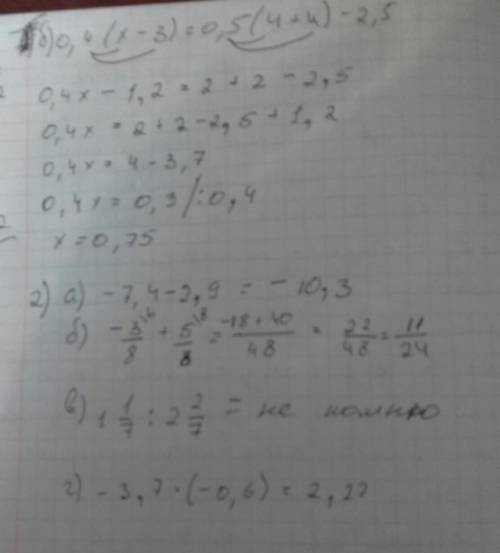 б) 0,4(x-3) = 0,5(4+4) - 2,5
0,4x - 1,2 = 2 + 2 - 2,5
0,4x = 2 + 2 - 2,5 + 1,2
0,4x = 4 - 3,7
0,4x = 0,3 /:0,4
x = 0,75
2) а) -7,4 - 2,9 = -10,3
б) -3/8 \6 + 5/8 \8 = -18+40/48 = 22/48 = 11/24
в) 1 1/7 : 2 2/7 = не помню
г) -3,7 · (-0,6) = 2,22